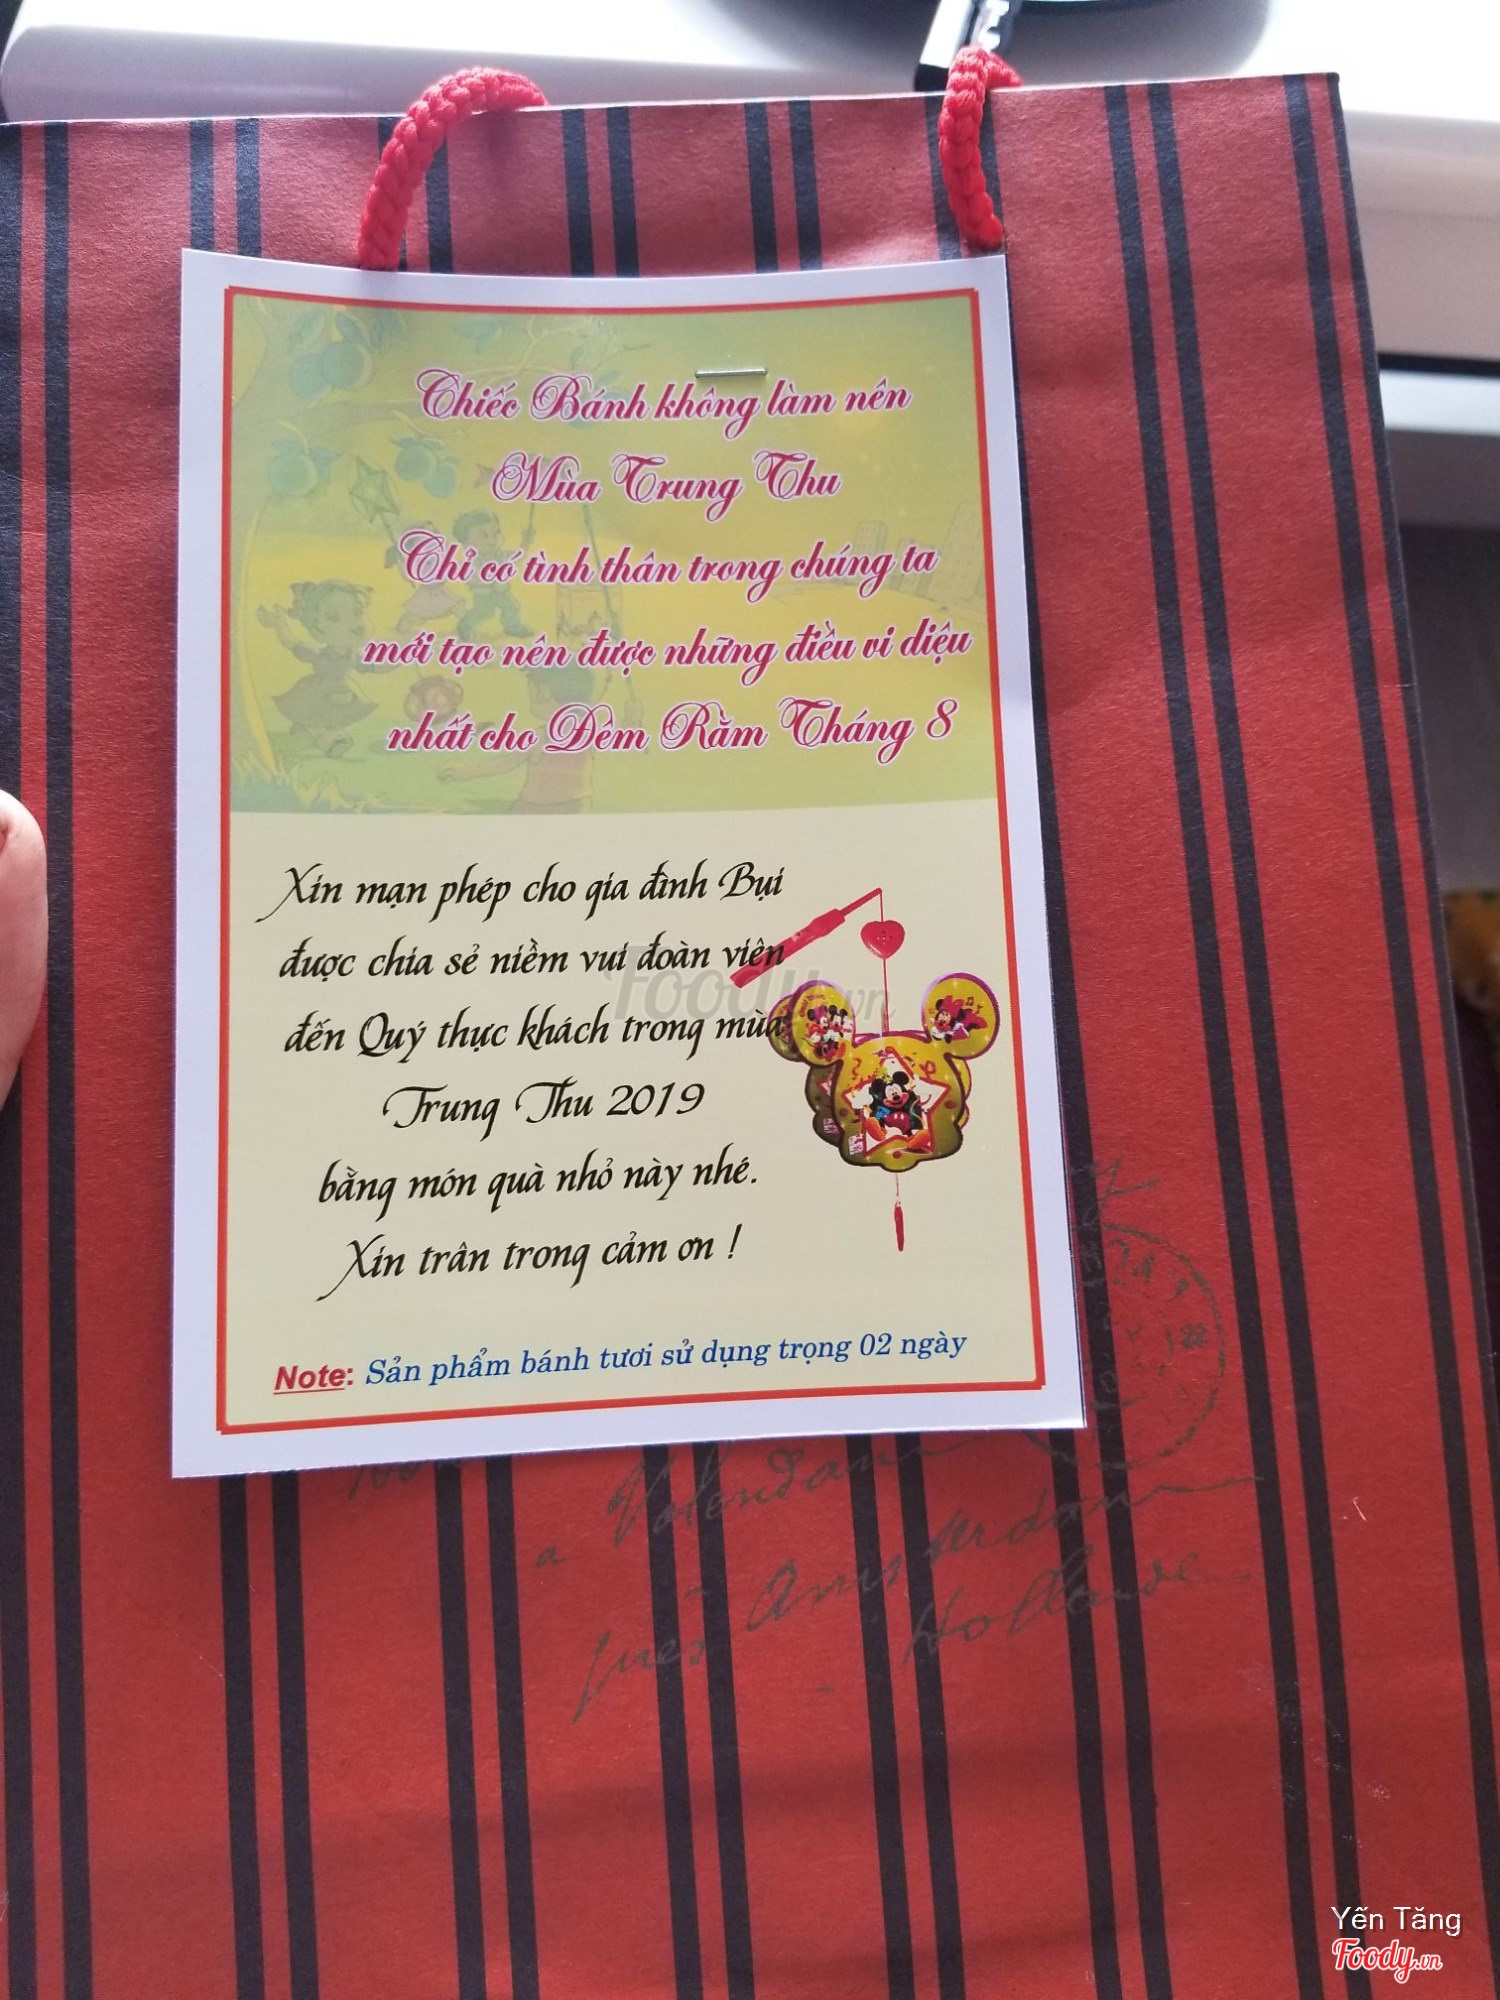 Chiếc Bánh không làm nên
Mùa Trung Thu
Chỉ có tình thân trong chúng ta
mới tạo nên được những điều vi diệu
nhất cho Đêm Rằm Tháng 8
Xin mạn phép cho gia đình Bụi
được chia sẻ niềm vui đoàn viên
Foody.vn
đến Quý thực khách trong mùa
Trung Thu 2019
bằng món quà nhỏ này nhé.
Xin trân trong cảm ơn !
Note: Sản phẩm bánh tươi sử dụng trọng 02 ngày
a Volendam
Amsterdam
Hollande
Yến Tăng
Foody.vn